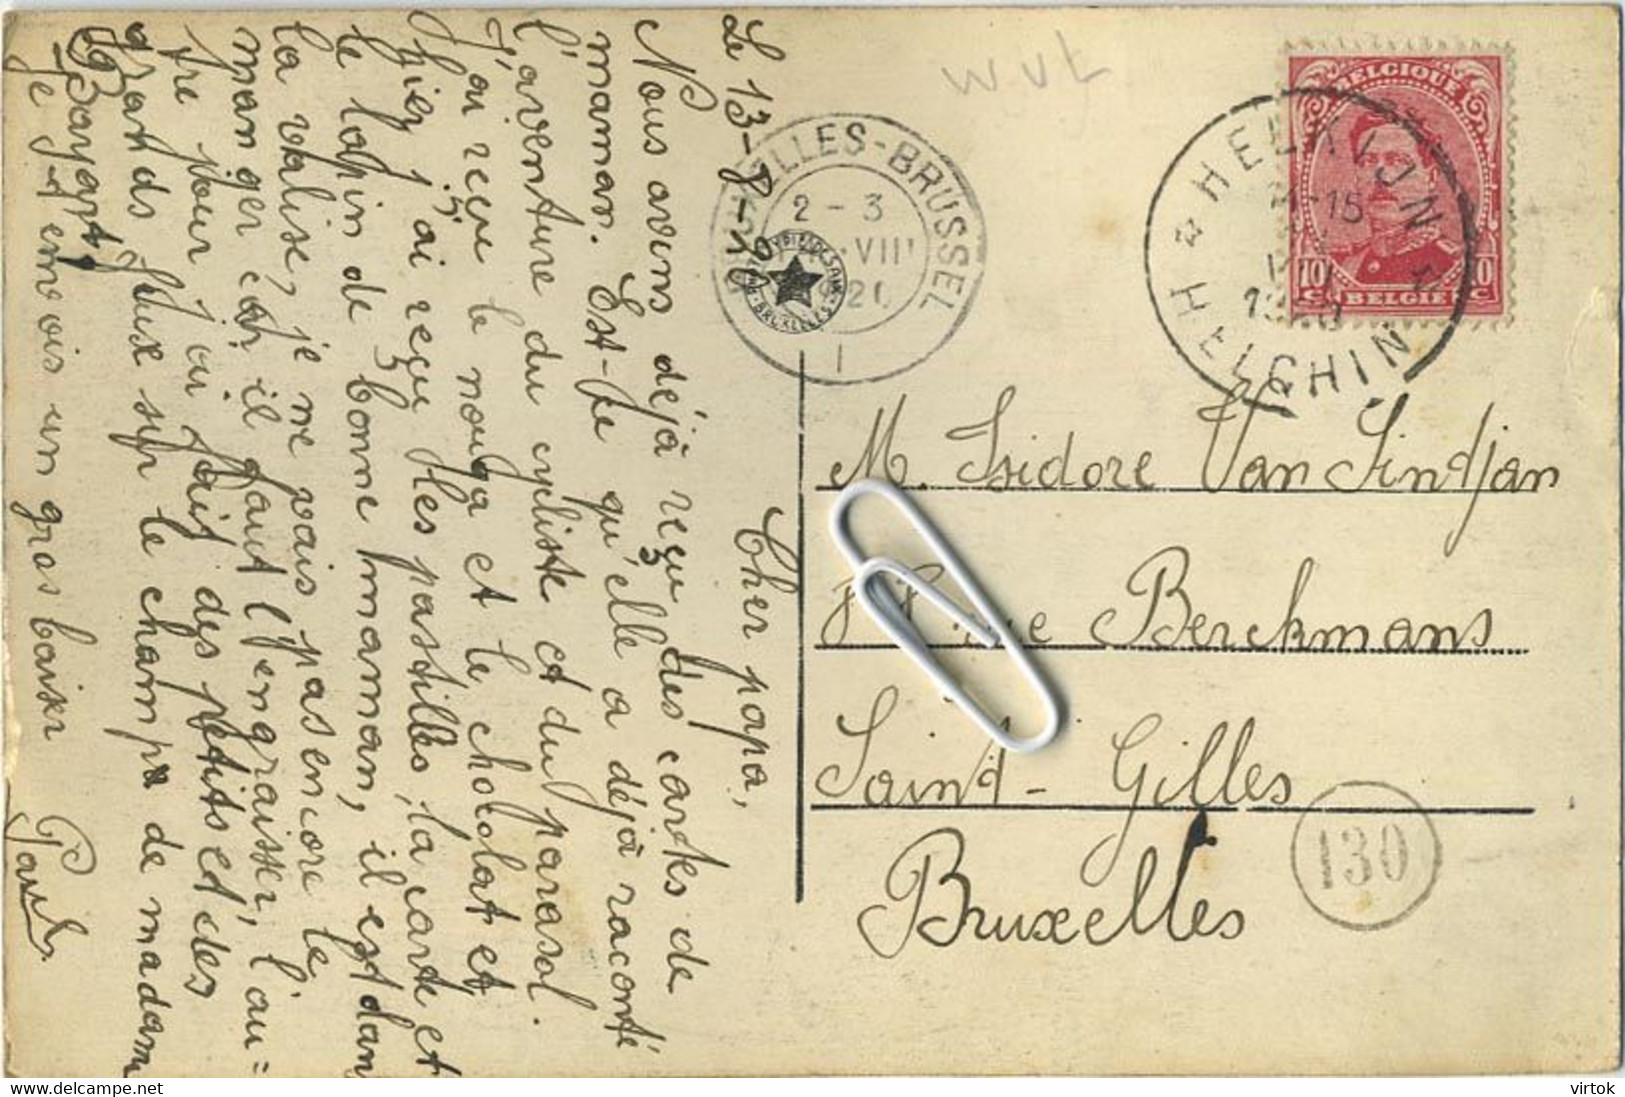 Le 13-8-20
Cher papa,
Nous avons déjà reçu des cartes de
maman. Est-ce qu'elle a déjà raconté
l'aventure du cycliste et du parasol.
J'ai reçu le nouga et le chocolat et,
hier, j'ai reçu les pastilles, la carte et
le lapin de bonne maman, il est dans
la valise, je ne vais pas encore le
manger car il faut l'engraisser, l'au=
tre jour j'ai fait des petits et des
grands feux sur le champ de madame
Bayart.
Je t'envois un gros baiser
Paul
M. Isidore Van Sindjan
Rue Berckmans
Saint-Gilles
Bruxelles
BELGIQUE
10 c
10 c
BELGIE
HELKIJN
HELCHIN
BRUXELLES-BRUSSEL
2 - 3
VIII
1
BRUXELLES
130
W V L
virtok